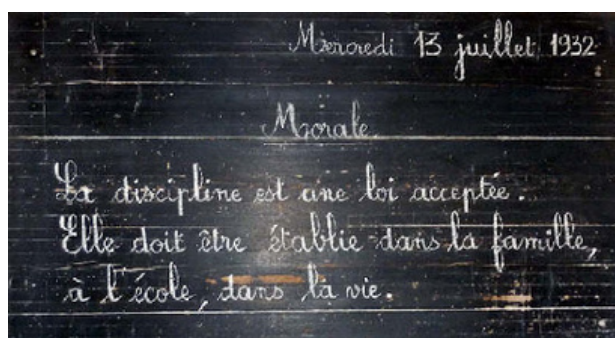 Mercredi 13 juillet 1932
Morale
La discipline est une loi acceptée.
Elle doit être établie dans la famille,
à l'école, dans la vie.